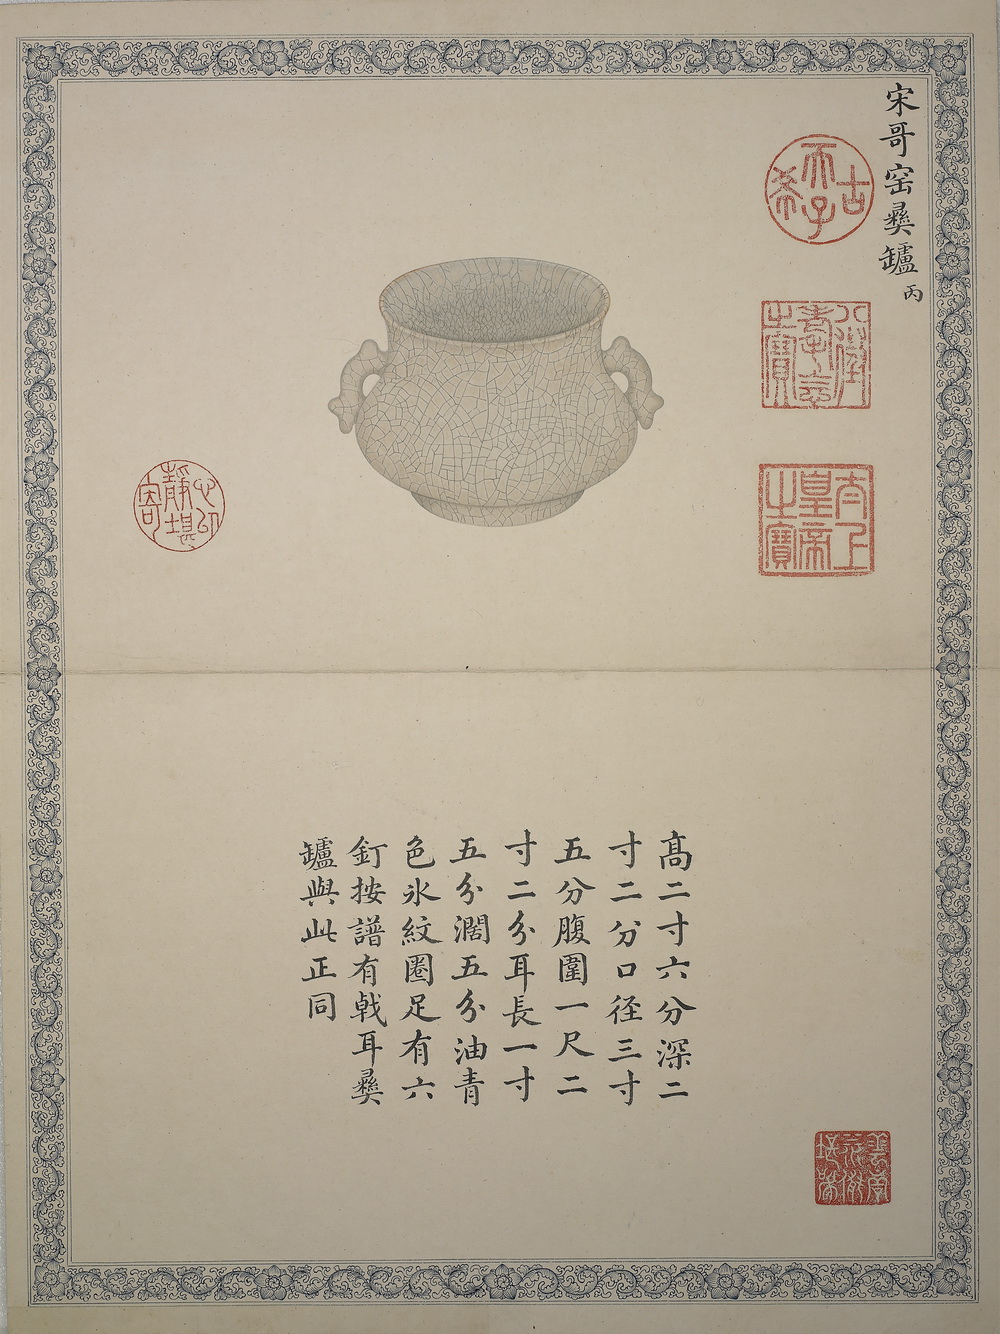 宋哥窑彝罏 丙
古
天子
希
八徵
耄念
之寶
太上
皇帝
之寶
高二寸六分深二
寸二分口径三寸
五分腹圍一尺二
寸二分耳長一寸
五分濶五分油青
色氷紋圈足有六
釘按譜有戟耳彝
罏與此正同